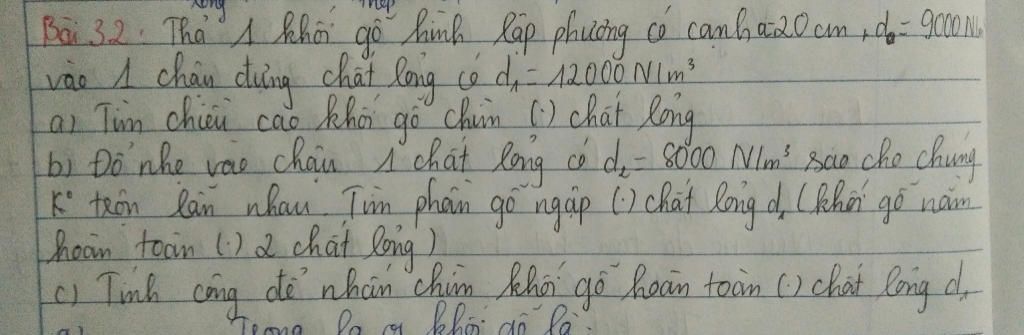 Bài 32: Thả 1 khối gỗ hình lập phương có cạnh a=20 cm, d₀= 9000 N/
vào 1 chậu đựng chất lỏng có d₁= 12000 N/m³
a) Tìm chiều cao khối gỗ chìm (.) chất lỏng
b) Đổ nhẹ vào chậu 1 chất lỏng có d₂= 8000 N/m³ sao cho chúng
K° trộn lẫn nhau. Tìm phần gỗ ngập (.) chất lỏng d₁ (khối gỗ nằm
hoàn toàn (.) 2 chất lỏng)
c) Tính công để nhấn chìm khối gỗ hoàn toàn (.) chất lỏng d₁
a) Trọng khối gỗ là: